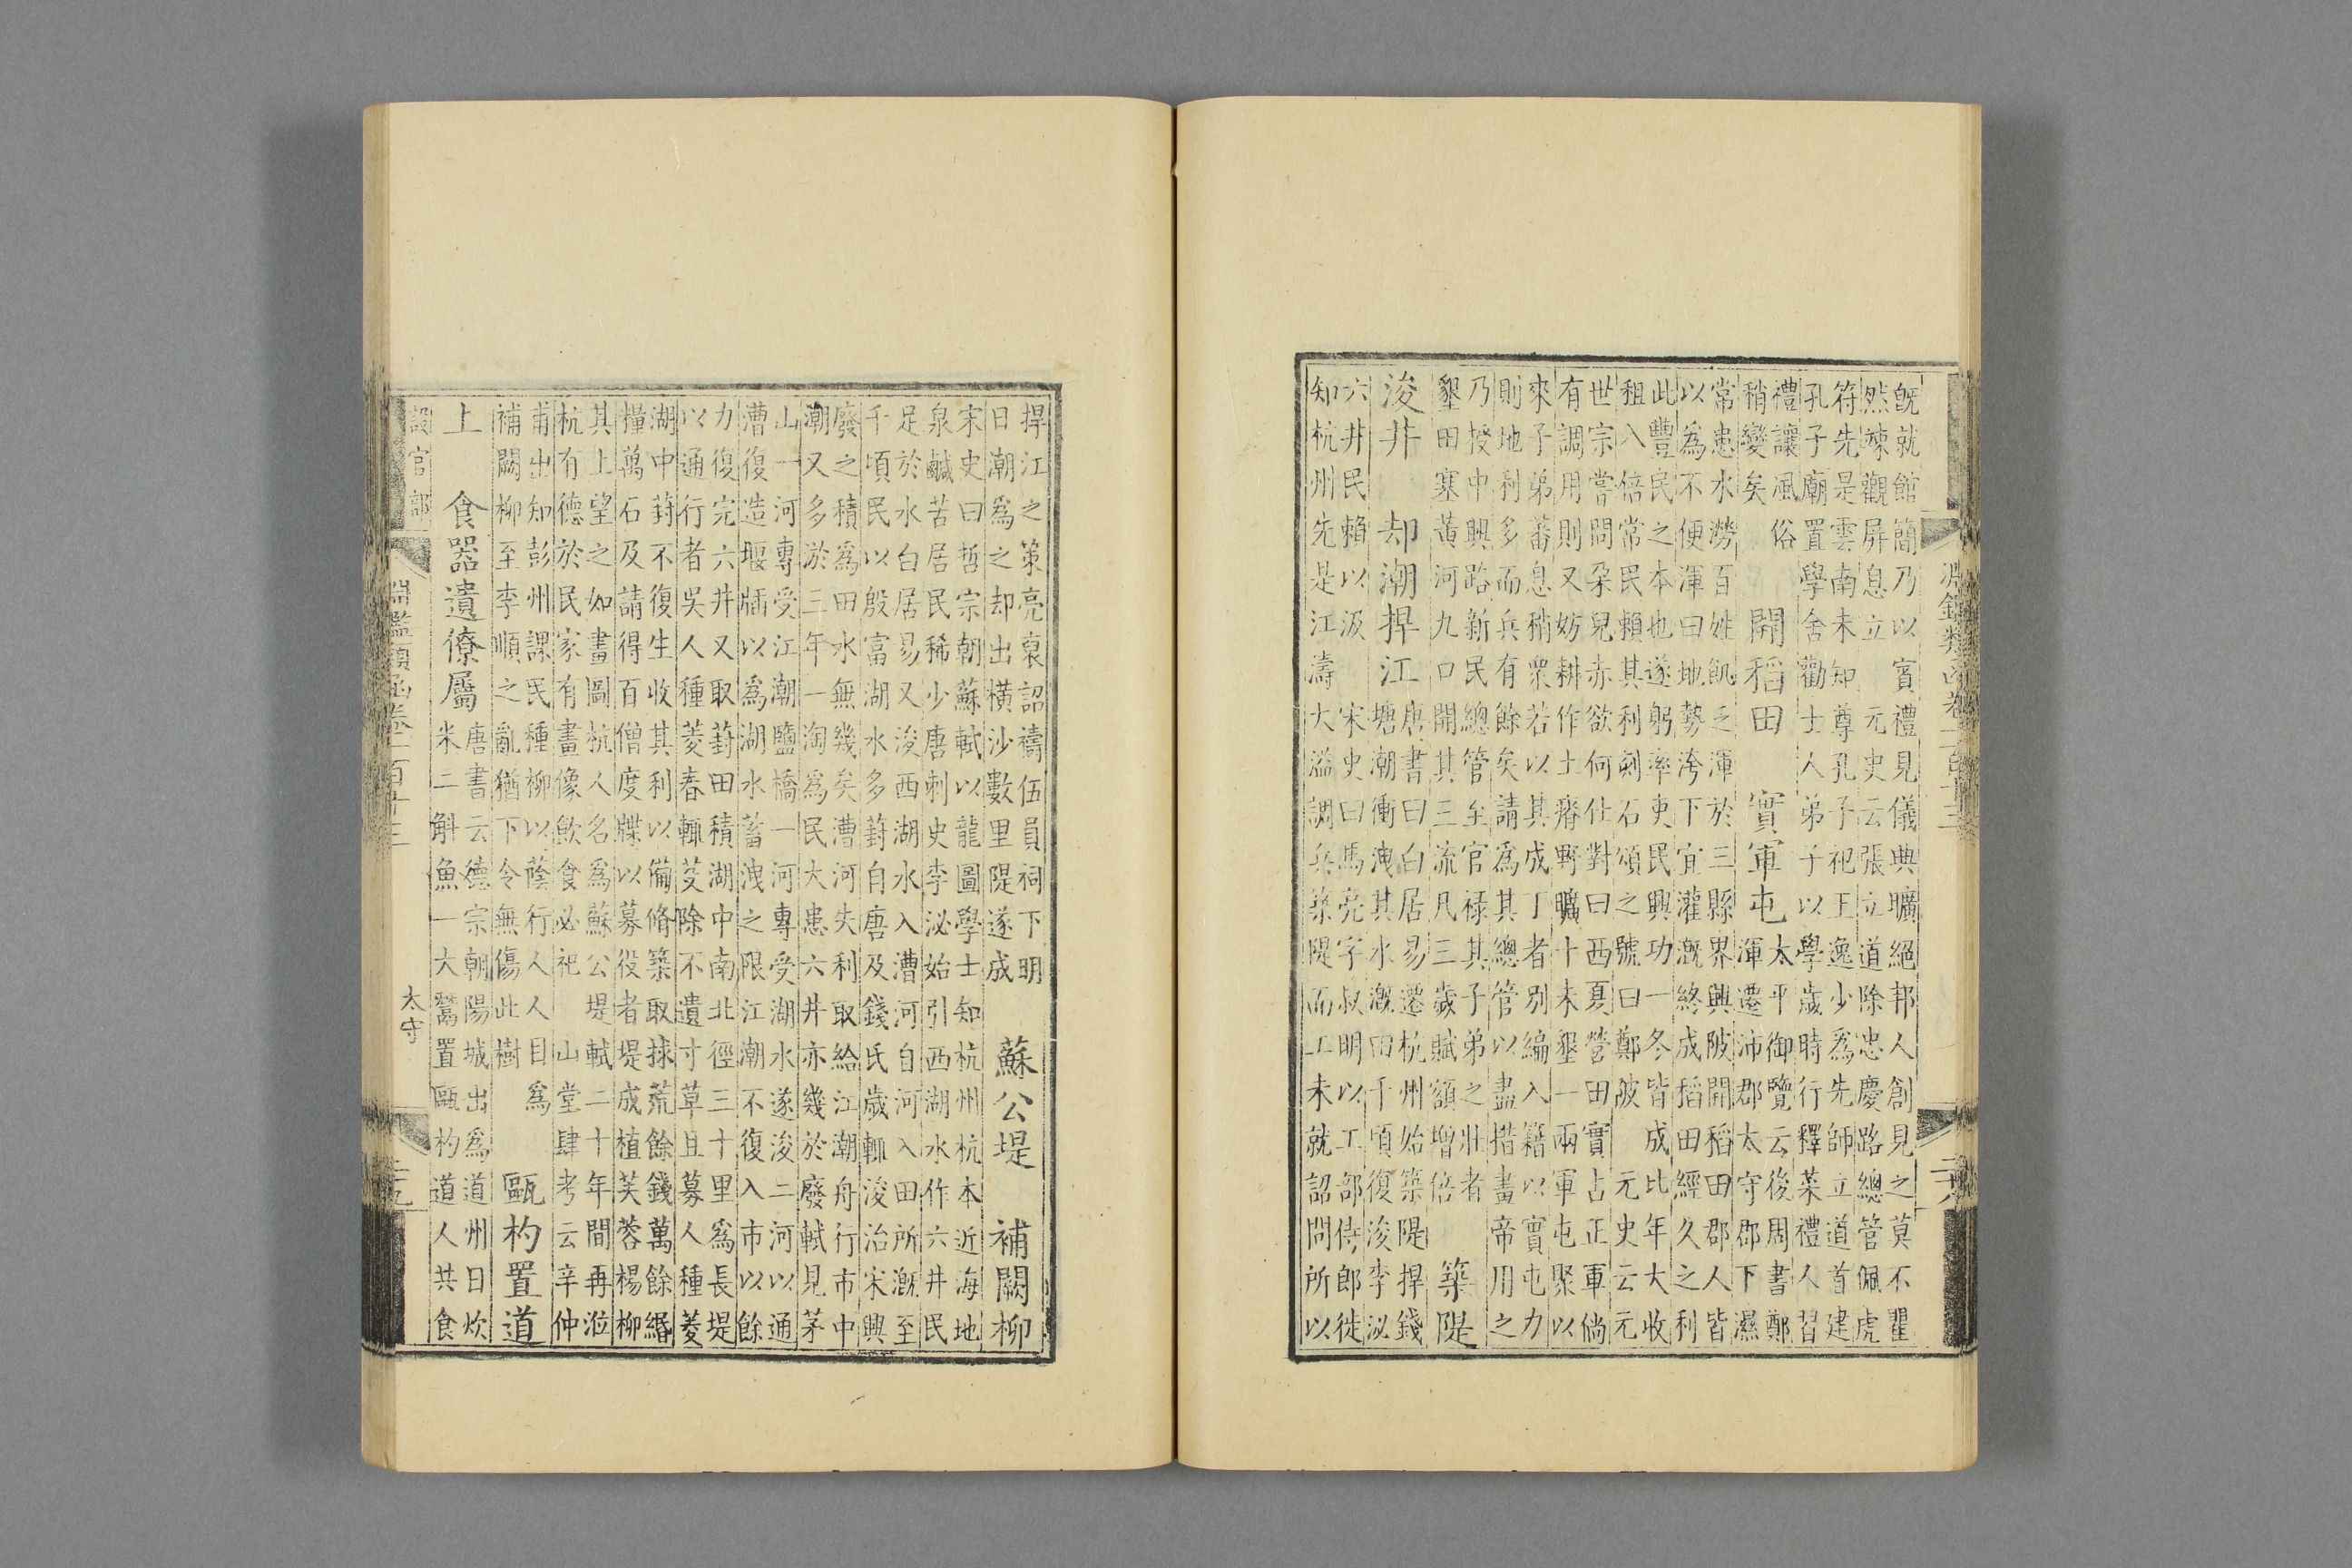 既就館簡乃以賓禮見儀典曠絕邦人創見之莫不瞿
然竦觀屏息立 元史云張立道除忠慶路總管佩虎
符先是雲南未知尊孔子祀王逸少為先師立道首建
孔子廟置學舍勸士人弟子以學歲時行釋菜禮人習
禮讓風俗
稍變矣
開稻田 實軍屯
太平御覽云後周書鄭
渾遷沛郡太守郡下濕
常患水澇百姓飢乏渾於三縣界興陂開稻田郡人皆
以為不便渾曰地勢洿下宜灌溉終成稻田經久之利
此豐民之本也遂躬率吏民興功一冬皆成比年大收
租入倍常民賴其利刻石頌之號曰鄭陂 元史云元
世宗嘗問朶兒赤欲何仕對曰西夏營田實占正軍倘
有調用則又妨耕作土瘠野曠十未墾一兩軍屯聚以
來子弟蕃息稍衆若以其成丁者別編入籍以實屯力
則地利多而兵有餘矣請為其總管以盡措畫帝用之
乃授中興路新民總管至官祿其子弟之壯者
墾田塞黃河九口開其三流凡三歲賦額增倍
築隄
浚井 却潮捍江
唐書曰白居易遷杭州始築隄捍錢
塘潮衝洩其水溉田千頃復浚李泌
六井民賴以汲 宋史曰馬亮字叔明以工部侍郎徙
知杭州先是江濤大溢調兵築隄而工未就詔問所以
捍江之策亮褒詔禱伍員祠下明
日潮為之却出橫沙數里隄遂成
蘇公堤 補闕柳
宋史曰哲宗朝蘇軾以龍圖學士知杭州杭本近海地
泉鹹苦居民稀少唐刺史李泌始引西湖水作六井民
足於水白居易又浚西湖水入漕河自河入田所溉至
千頃民以殷富湖水多葑自唐及錢氏歲輒浚治宋興
廢之積為田水無幾矣漕河失利取給江潮舟行市中
潮又多於三年一淘為民大患六井亦幾於廢軾見茅
山一河專受江潮鹽橋一河專受湖水遂浚二河以通
漕復造堰牐以為湖水蓄洩之限江潮不復入市以餘
力復完六井又取葑田積湖中南北徑三十里為長堤
以通行者吳人種菱春輒芟除不遺寸草且募人種菱
湖中葑不復生收其利以備脩築取捄荒餘錢萬餘緡
糧萬石及請得百僧度牒以募役者堤成植芙蓉楊柳
其上望之如畫圖杭人名為蘇公堤軾二十年間再涖
杭有德於民家有畫像飲食必祀 山堂肆考云辛仲
甫出知彭州課民種柳以蔭行人人目為
補闕柳至李順之亂猶下令無傷此樹
甌杓置道
上 食器遺僚屬
唐書云德宗朝陽城出為道州日炊
米二斛魚一大鬵置甌杓道人共食
淵鑑類函卷一百十三
太守